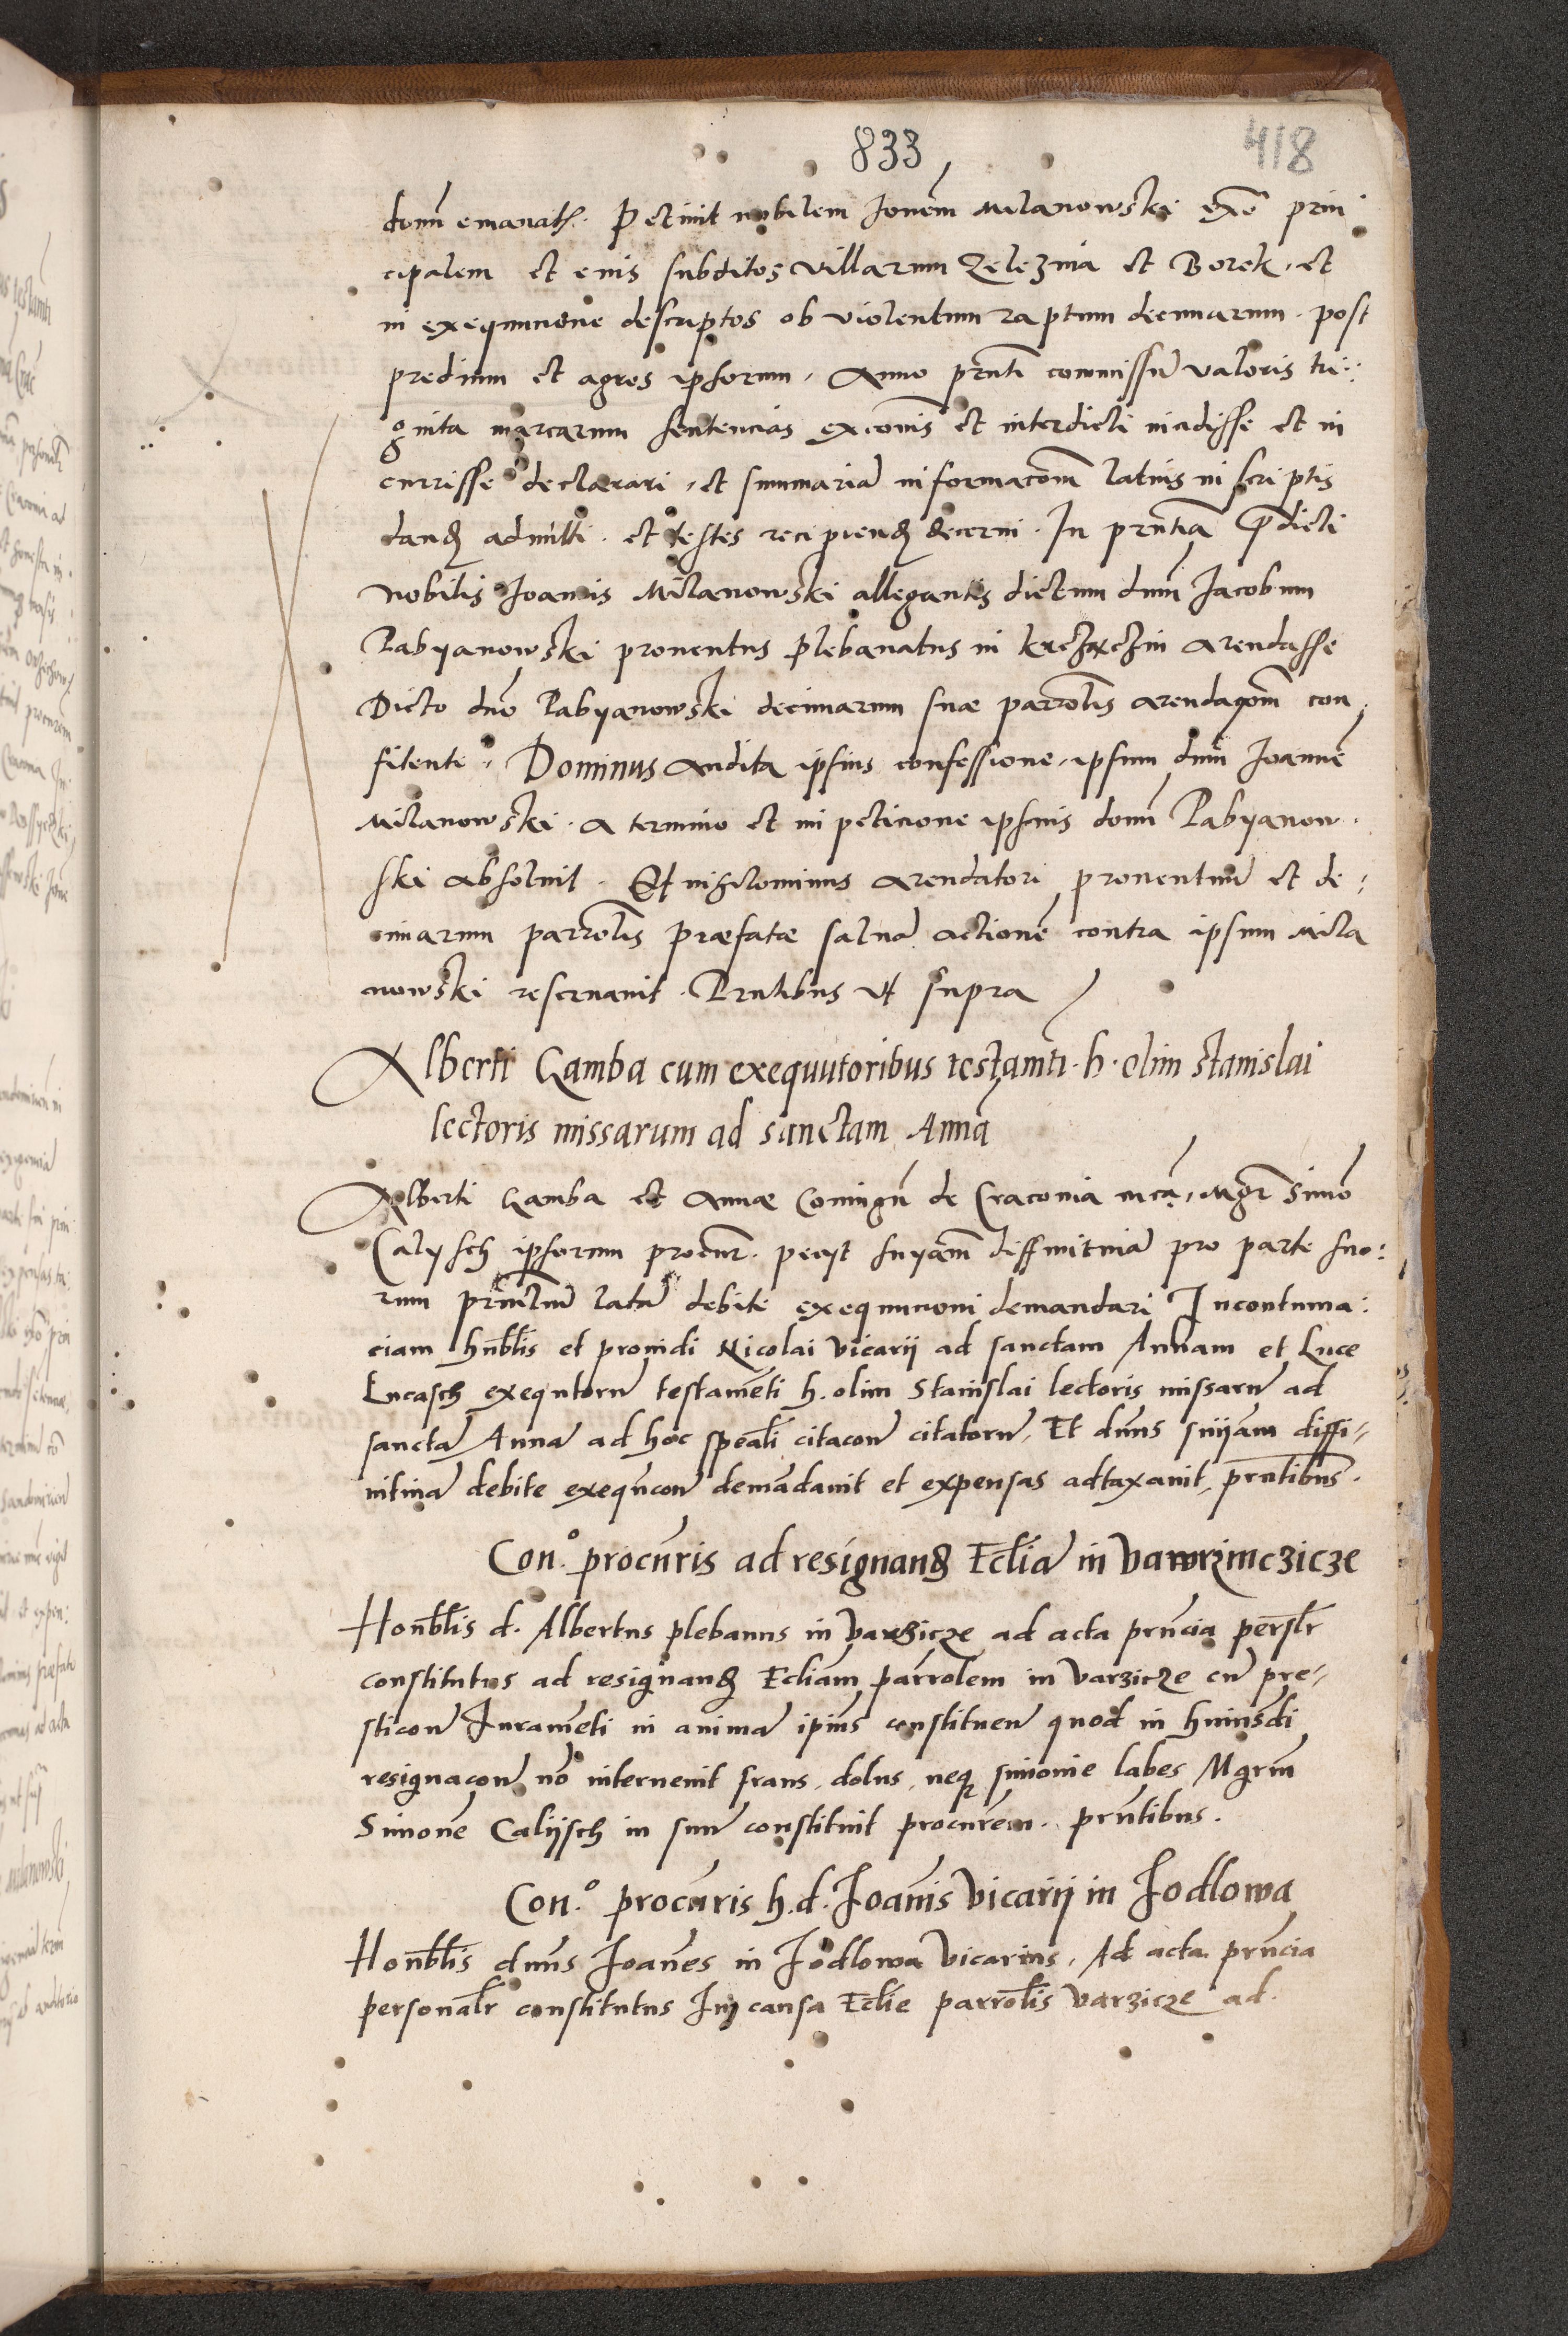 833
418
dom̄ emanatꝭ. Petivit nobilem Ioannem Milanowski exñ prin
cipalem et eius subditos villarum Zelezna et Borek, et
in exequucione descriptos ob violentum raptum decimarum post
predium et agros ipsorum, Anno prñti commissum valoris tri:
ginta marcarum sentencias excoīs et interdicti incidisse et in
currisse declarari, et summariã informacoēm latius in scriptis
dandã admitti et testes recipiendos decerni. In prñtia p̃dicti
nobilis Ioannis Milanowski allegantis dictum dnm̄ Iacobum
Pabyanowski proventus plebanatus in arendasse
Dicto dno Pabyanowski decimarum suae parrolis arendacoēm con
fitente. Dominus audita ipsius confessione, ipsum dnm̄ Ioannē
Milanowski a termino et impeticione ipsius domī Pabyanow
ski absolvit. Et nihilominus arendatori proventuum et de:
cimarum parrolis praefatae salvam actionē contra ipsum Mila
nowski reservavit. Prñtibus ut supra
Alberti Gamba cum exequutoribus testamti h. olim stanislai
lectoris missarum ad sanctam Annã
Alberti Gamba et Annae coniugũ de Cracovia Mgr̄ Simō
Calysch ipsorum procur. pecyt snyam̄ diffinitivã pro parte suo:
rum latã debite exequucioni demandari Incontuma:
ciam hnblis et providi Nicolai vicarii ad sanctam Annam et Luce
Lucasch exequutorũ testamēti h. olim Stanislai lectoris missarũ ad
sanctã Annã ad hoc speāli citacoñ citatorũ, Et dnūs snyam̄ diffi-
nitivã debite exequucoñ demãdavit et expensas adtaxavit, prñtibus.
Con.º procuris ad resignandã Ecliã in Vawrzinczicze
Honblis d. Albertus plebanus in Varzicze ad acta prñcia persālr
constitutus ad resignandã Ecliam parrolem in Varzicze cũ pre-
sticoñ Iuramēti in animã ipius constitueñ quod in huiusdi
resignacoñ nō intervenit fraus, dolus, neqꝫ simonie labes Mgrm̄
Simonē Caliisch in suũ constituit procurēm. prñtibus.
Con.º procuris h. d. Ioānis Vicarii in Iodlowa
Honblis dnūs Ioānes in Iodlowa Vicarius, Ad acta prñcia
personālr constitutus In causa Eclie parrolis Varzicze ad